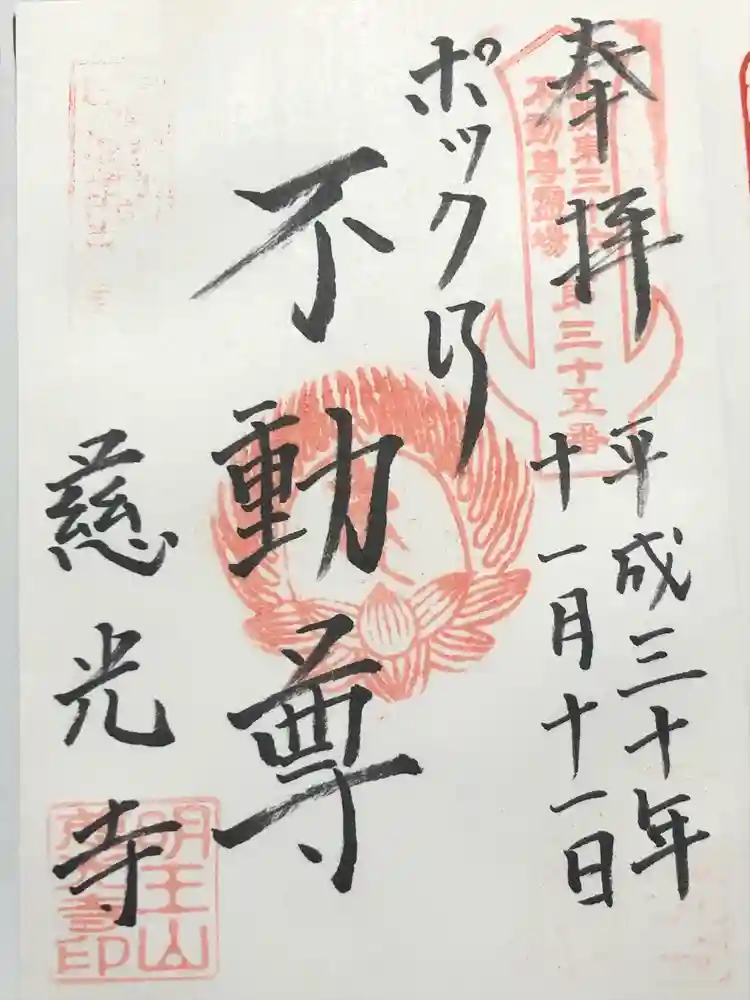 奉拝
東三十六
不動尊霊場
三十五番
平成三十年
十一月十一日
ポックリ
不動尊
慈光寺
明王山
慈光寺印